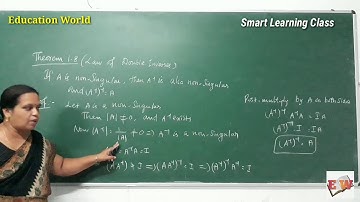 Education World
Smart Learning Class
Theorem 1.8 (Law of Double Inverse)
If A is non-singular, then A⁻¹ is also non-singular
and (A⁻¹)⁻¹ = A
Let A is a non-singular
Then |A| ≠ 0, and A⁻¹ exists
Now |A⁻¹| = 1/|A| ≠ 0 ⇒ A⁻¹ is a non-singular
= A⁻¹A = I
(AA⁻¹)⁻¹ = I ⇒ (AA⁻¹)⁻¹ = I ⇒ (A⁻¹)⁻¹ A⁻¹ = I
Post-multiply by A on both sides
(A⁻¹)⁻¹ A⁻¹A = IA
(A⁻¹)⁻¹ I = IA
(A⁻¹)⁻¹ = A
EW